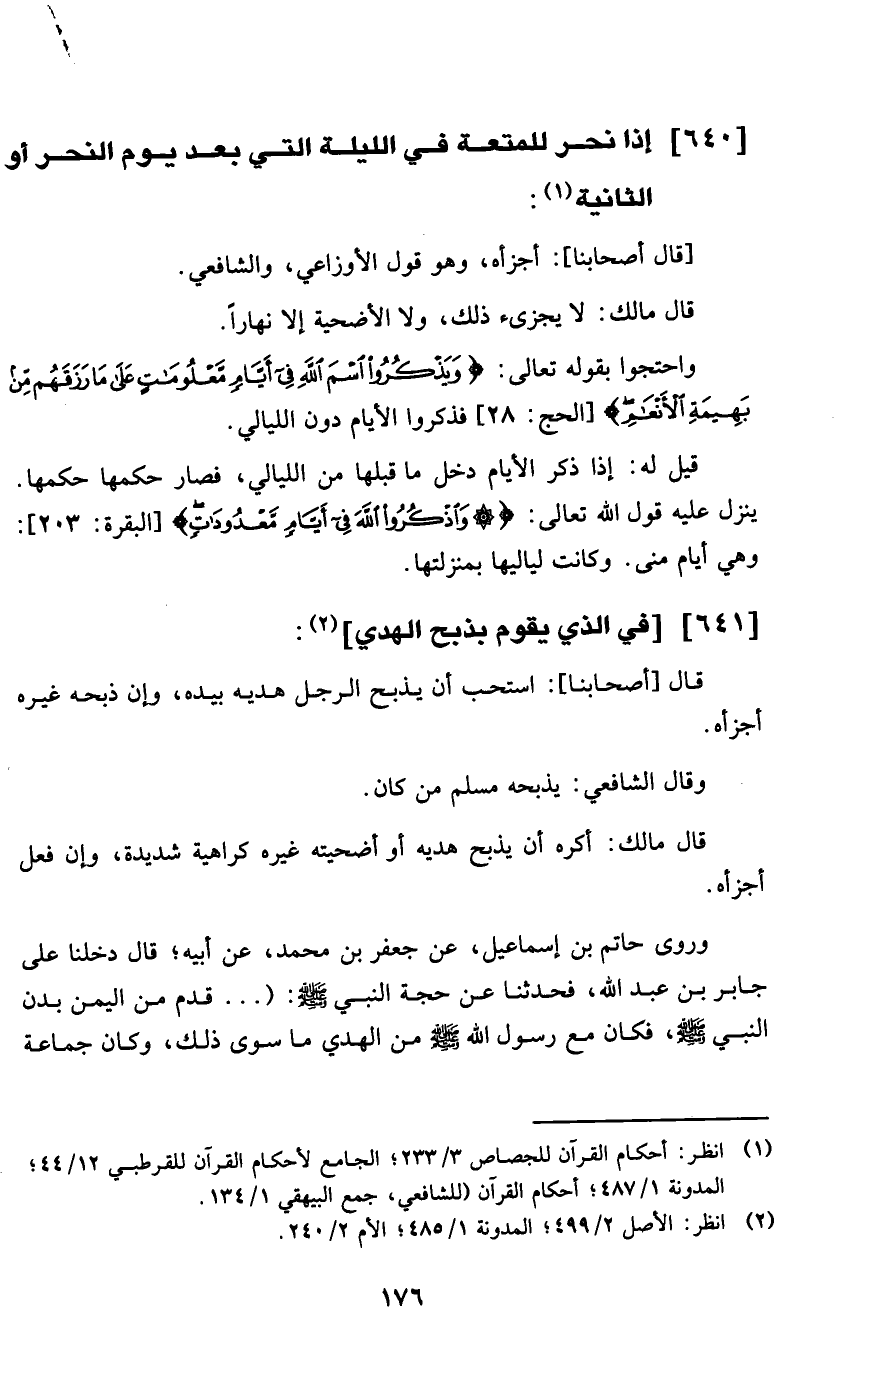 [٦٤٠] إذا نحر للمتعة في الليلة التي بعد يوم النحر أو
الثانية(١):
[قال أصحابنا]: أجزأه، وهو قول الأوزاعي، والشافعي.
قال مالك: لا يجزىء ذلك، ولا الأضحية إلا نهاراً.
واحتجوا بقوله تعالى: ﴿وَيَذْكُرُوا۟ ٱسْمَ ٱللَّهِ فِىٓ أَيَّامٍ مَّعْلُومَٰتٍ عَلَىٰ مَا رَزَقَهُم مِّنۢ
بَهِيمَةِ ٱلْأَنْعَٰمِۖ﴾ [الحج: ٢٨] فذكروا الأيام دون الليالي.
قيل له: إذا ذكر الأيام دخل ما قبلها من الليالي، فصار حكمها حكمها.
ينزل عليه قول الله تعالى: ﴿۞ وَٱذْكُرُوا۟ ٱللَّهَ فِىٓ أَيَّامٍ مَّعْدُودَٰتٍۚ﴾ [البقرة: ٢٠٣]:
وهي أيام منى. وكانت لياليها بمنزلتها.
[٦٤١] [في الذي يقوم بذبح الهدي](٢):
قال [أصحابنا]: استحب أن يذبح الرجل هديه بيده، وإن ذبحه غيره
أجزأه.
وقال الشافعي: يذبحه مسلم من كان.
قال مالك: أكره أن يذبح هديه أو أضحيته غيره كراهية شديدة، وإن فعل
أجزأه.
وروى حاتم بن إسماعيل، عن جعفر بن محمد، عن أبيه؛ قال دخلنا على
جابر بن عبد الله، فحدثنا عن حجة النبي ﷺ: (... قدم من اليمن بدن
النبي ﷺ، فكان مع رسول الله ﷺ من الهدي ما سوى ذلك، وكان جماعة
(١) انظر: أحكام القرآن للجصاص ٣/ ٢٣٣؛ الجامع لأحكام القرآن للقرطبي ١٢/ ٤٤؛
المدونة ١/ ٤٨٧؛ أحكام القرآن (للشافعي، جمع البيهقي ١/ ١٣٤.
(٢) انظر: الأصل ٢/ ٤٩٩؛ المدونة ١/ ٤٨٥؛ الأم ٢/ ٢٤٠.
١٧٦